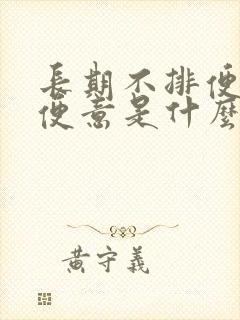 長期不排便
便意是什麼
黃守義